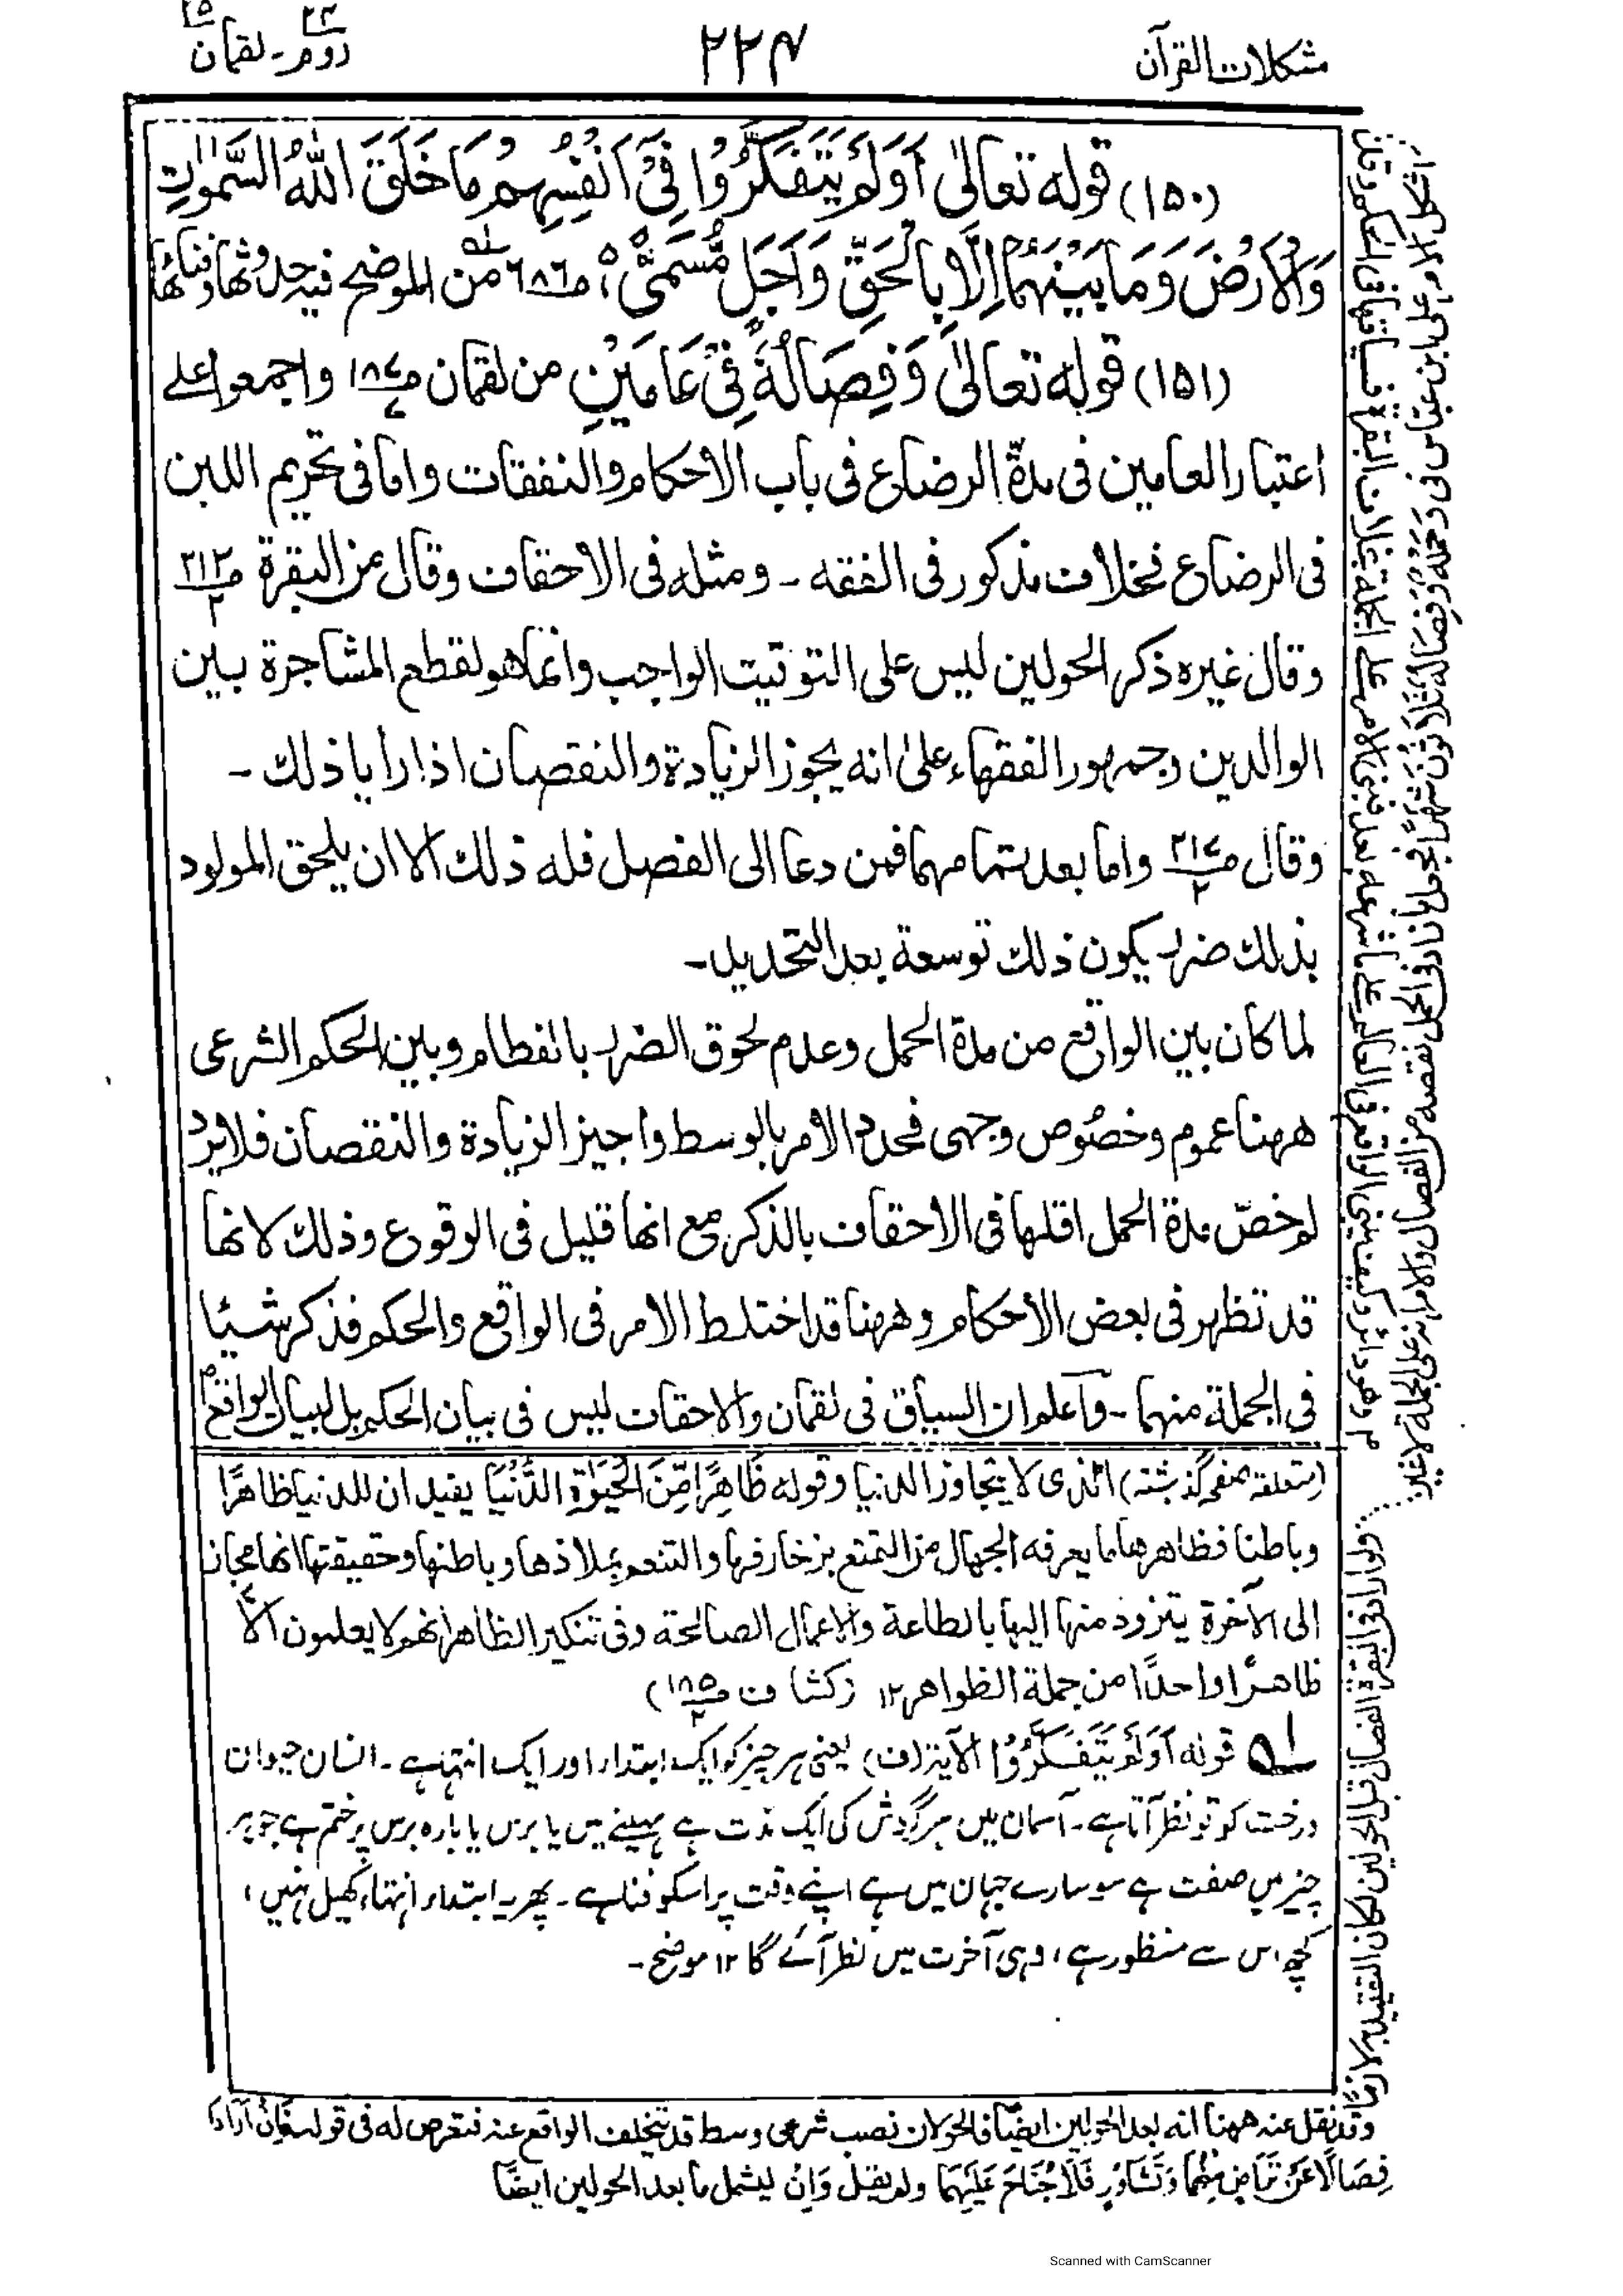 مشكلات القرآن
٢٢٤
دوم - لقمان
(١٥٠) قوله تعالىٰ أَوَلَمْ يَتَفَكَّرُوْا فِيْٓ اَنْفُسِهِمْ مَا خَلَقَ اللّٰهُ السَّمٰوٰتِ
وَالْاَرْضَ وَمَا بَيْنَهُمَا اِلَّا بِالْحَقِّ وَاَجَلٍ مُّسَمًّىؕ، م٦٨٦ من الموضح فيه حدوثها وفنائها
(١٥١) قوله تعالىٰ وَفِصَالُهٗ فِيْ عَامَيْنِ من لقمان واجمعوا على
اعتبار العامين فى مدّة الرضاع فى باب الاحكام والنفقات واما فى تحريم اللبن
فى الرضاع فخلاف مذكور فى الفقه - ومثله فى الاحقاف وقال من البقرة م٢١٢/٢
وقال غيره ذكر الحولين ليس على التوقيت الواجب وانما هو لقطع المشاجرة بين
الوالدين وجمهور الفقهاء علىٰ انه يجوز الزيادة والنقصان اذا رأيا ذلك -
وقال واما بعد تمامهما فمن دعا الى الفصل فله ذلك الا ان يلحق المولود
بذلك ضرر يكون ذلك توسعة بعد التحديد -
لما كان بين الواقع من مدة الحمل وعدم لحوق الضرر بالفطام وبين الحكم الشرعى
ههنا عموم وخصوص وجهى فحدد الامر بالوسط واجيز الزيادة والنقصان فلا يرد
لم خصّ مدة الحمل اقلها فى الاحقاف بالذكر مع انها قليل فى الوقوع وذلك لانها
قد تظهر فى بعض الاحكام وههنا قد اختلط الامر فى الواقع والحكم فذكر شيئا
فى الجملة منهما - واعلم ان السياق فى لقمان والاحقاف ليس فى بيان الحكم بل لبيان الواقع
(متعلقه صفحه گذشته) الذى لا يتجاوز الدنيا وقوله ظَاهِرًا مِّنَ الْحَيٰوةِ الدُّنْيَا يفيد ان للدنيا ظاهرًا
وباطنا فظاهرها ما يعرفه الجهال من التمتع بزخارفها والتنعم بملاذها وباطنها وحقيقتها انها مجاز
الى الآخرة يتزود منها اليها بالطاعة والاعمال الصالحة وفى تنكير الظاهر انهم لا يعلمون الّا
ظاهرًا واحدًا من جملة الظواهر ١٢ (كشاف م١٨٥/٢)
قوله اَوَلَمْ يَتَفَكَّرُوْا الآية (ف) يعنى ہر چيز كو ايک ابتداء اور ايک انتہا ہے - انسان حيوان
درخت كو تو نظر آتا ہے - آسمان ميں ہر گردش كى ايک مدت ہے مہينے ميں يا برس يا باره برس پر ختم ہے جو ہر
چيز ميں صفت ہے سو سارے جہان ميں ہے اپنے وقت پر اسكو فنا ہے - پھر يہ ابتداء انتہاء كھيل نہيں ،
كچھ اس سے منظور ہے ، وہى آخرت ميں نظر آئے گا ١٢ موضح -
اشكل الامر على ابن عباس فى وَحَمْلُهٗ وَفِصَالُهٗ ثَلٰثُوْنَ شَهْرًا فجعل ما زاد فى الحمل نقصه من الفصال والامر انه على الجملة لا غير
ولو اراد فى البقرة الفصال قبل الحولين لكان التقييد به لازمًا
وقد نقل عنه ههنا انه بعد الحولين ايضًا فالحولان نصب شرعى وسط قد يتخلف الواقع عنه فتعرض له فى قوله فَاِنْ اَرَادَا
فِصَالًا عَنْ تَرَاضٍ مِّنْهُمَا وَتَشَاوُرٍ فَلَا جُنَاحَ عَلَيْهِمَا ولم يقل وَاِنْ ليشمل ما بعد الحولين ايضًا
Scanned with CamScanner